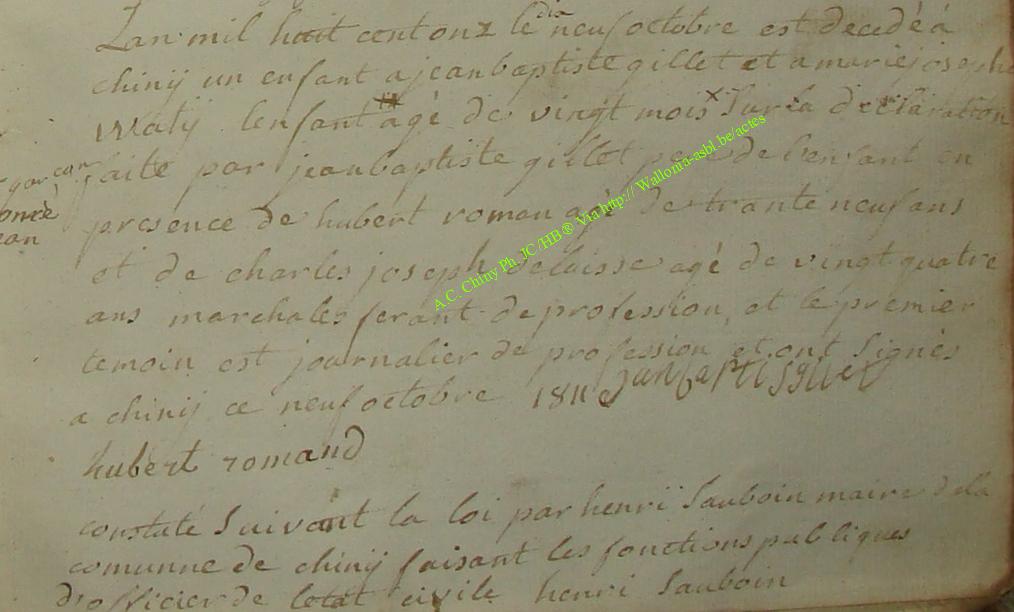 Lan mil huit centonz le dix neuf octobre est decedé à
chinÿ un enfant a jean baptiste gillet et a marie joseph
Watÿ lenfant # agé de vingt mois x Sur la déclaration
faite par jean baptiste gillet pere de l'enfant en
presence de hubert roman agé de trante neuf ans
et de charles joseph delaisse agé de vingt quatre
ans marchales ferant de profession, et le premier
temoin est journalier de profession et ont Signés
a chinÿ ce neuf octobre 1811 janbatis gillet
hubert romand
constaté Suivant la loi par henri Sauboin maire dela
comunne de chinÿ faisant les fonctions publiques
d'officier de letat civile henri Sauboin
A.C. Chiny Ph. JC /HB ® Via http:// Wallonia-asbl.be/actes